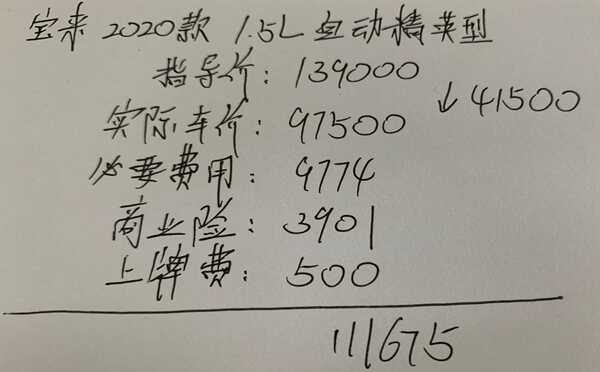 宝来 2020款 1.5L 自动精英型
指导价: 139000
↓41500
实际车价: 97500
必要费用: 9774
商业险: 3901
上牌费: 500
111675